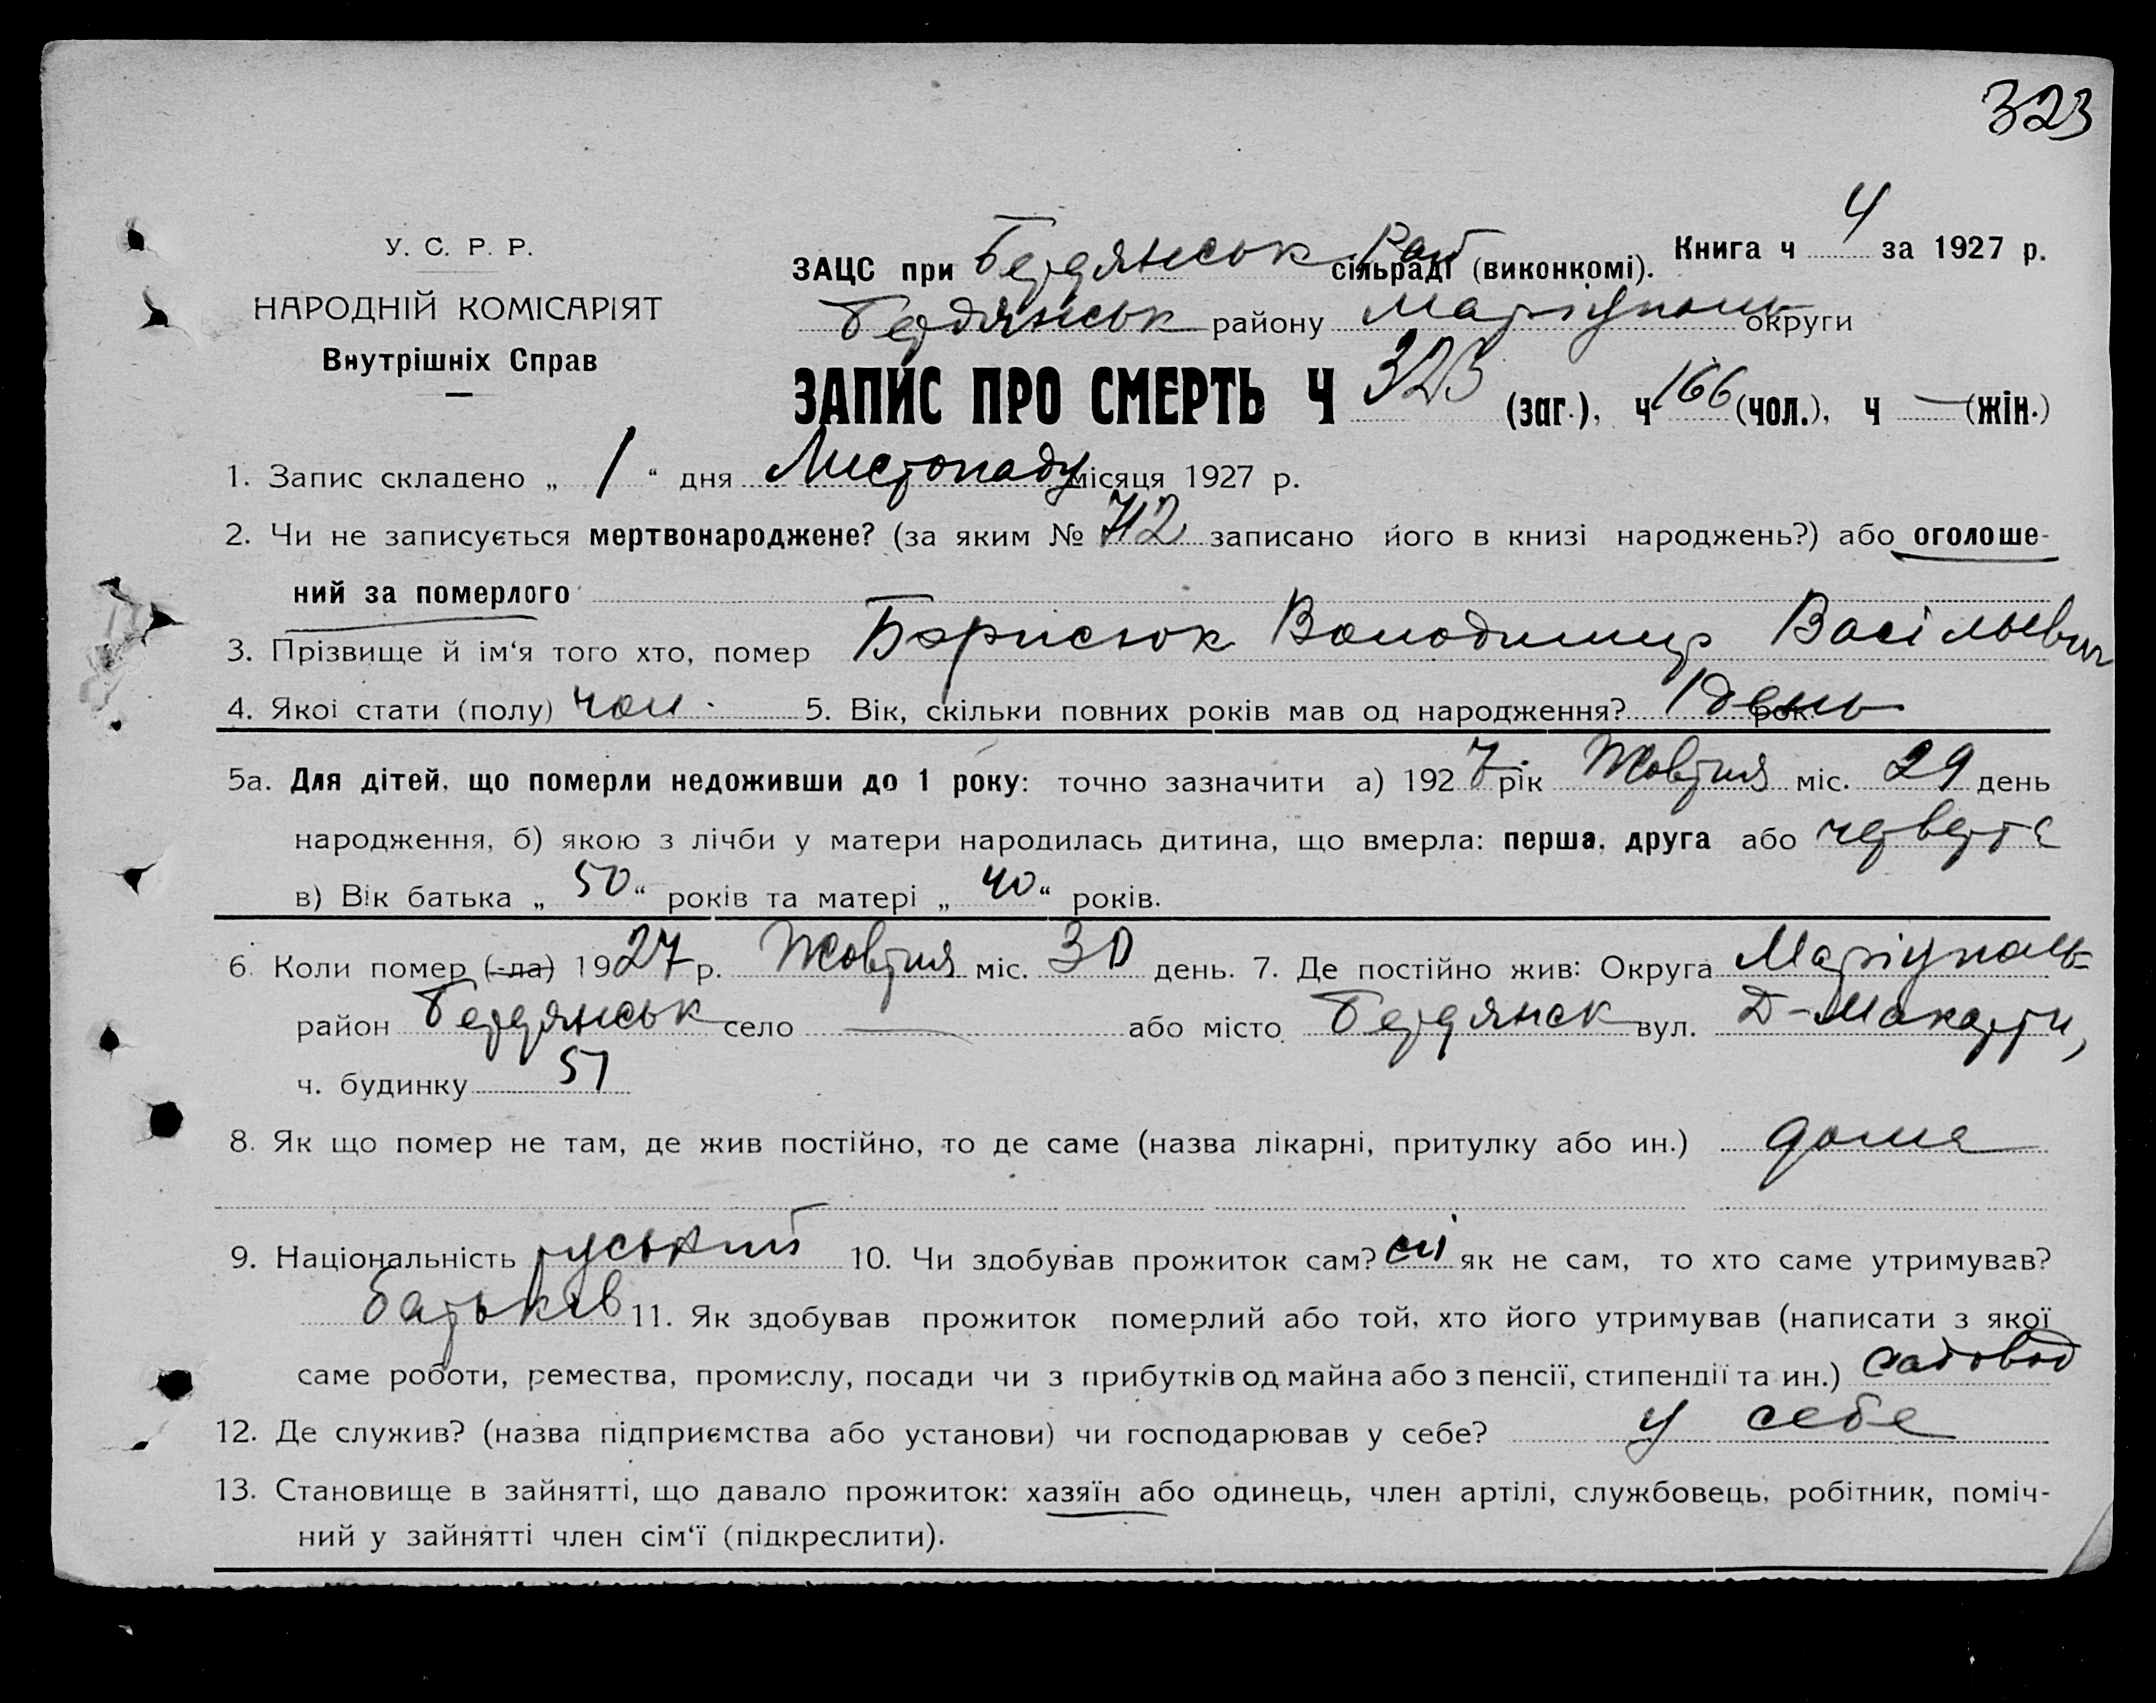 323
У. С. Р. Р.
НАРОДНІЙ КОМІСАРІЯТ
Внутрішніх Справ
Книга ч 4 за 1927 р.
ЗАЦС при Бердянськ Рай сільраді (виконкомі).
Бердянськ району Маріуполь округи
ЗАПИС ПРО СМЕРТЬ Ч 323 (заг.), ч 166 (чол.), ч — (жін.)
1. Запис складено „ 1 “ дня Листопаду місяця 1927 р.
2. Чи не записується мертвонароджене? (за яким № 712 записано його в книзі народжень?) або оголоше-
ний за померлого
3. Прізвище й ім‘я того хто, помер Борисюк Володимир Васільевич
4. Якої стати (полу) чол. 5. Вік, скільки повних років мав од народження? 1 день рок.
5а. Для дітей, що померли недоживши до 1 року: точно зазначити а) 1927 рік Жовтня міс. 29 день
народження, б) якою з лічби у матери народилась дитина, що вмерла: перша, друга або четверта
в) Вік батька „ 50 “ років та матері „ 40 “ років.
6. Коли помер (-ла) 1927 р. Жовтня міс. 30 день. 7. Де постійно жив: Округа Маріуполь
район Бердянськ село — або місто Бердянск вул. Д-Макарти,
ч. будинку 51
8. Як що помер не там, де жив постійно, то де саме (назва лікарні, притулку або ин.) дома
9. Національність руський 10. Чи здобував прожиток сам? ні як не сам, то хто саме утримував?
батьків 11. Як здобував прожиток померлий або той, хто його утримував (написати з якої
саме роботи, ремества, промислу, посади чи з прибутків од майна або з пенсії, стипендії та ин.) садовод
12. Де служив? (назва підприємства або установи) чи господарював у себе? у себе
13. Становище в зайнятті, що давало прожиток: хазяїн або одинець, член артілі, службовець, робітник, поміч-
ний у зайнятті член сім‘ї (підкреслити).